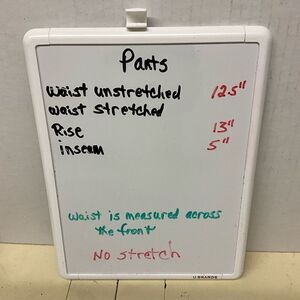 Pants
Waist unstretched 12.5"
waist stretched
Rise 13"
inseam 5"
Waist is measured across
the front
No stretch
U BRANDS